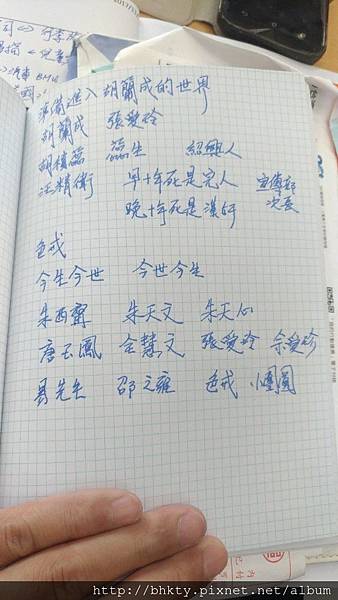 準備進入胡蘭成的世界
胡蘭成 張愛玲
胡積蕊 蕊生 紹興人
汪精衛 早十年死是完人 宣傳部
晚十年死是漢奸 次長
色戒
今生今世 今世今生
朱西甯 朱天文 朱天心
唐玉鳳 全慧文 張愛玲 佘愛珍
易先生 邵之雍 色戒 小團圓
http://bhkty.pixnet.net/album